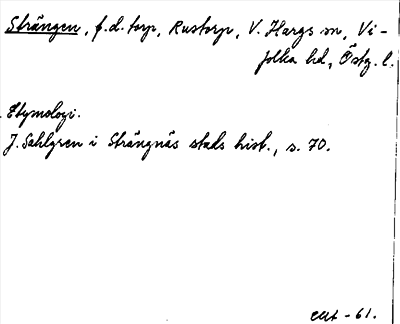 Strängen, f.d. torp, Rustorp, V. Hargs sn, Vi-
folka hd, Östg. l.
Etymologi.
J. Sahlgren i Strängnäs stads hist., s. 70.
-61.